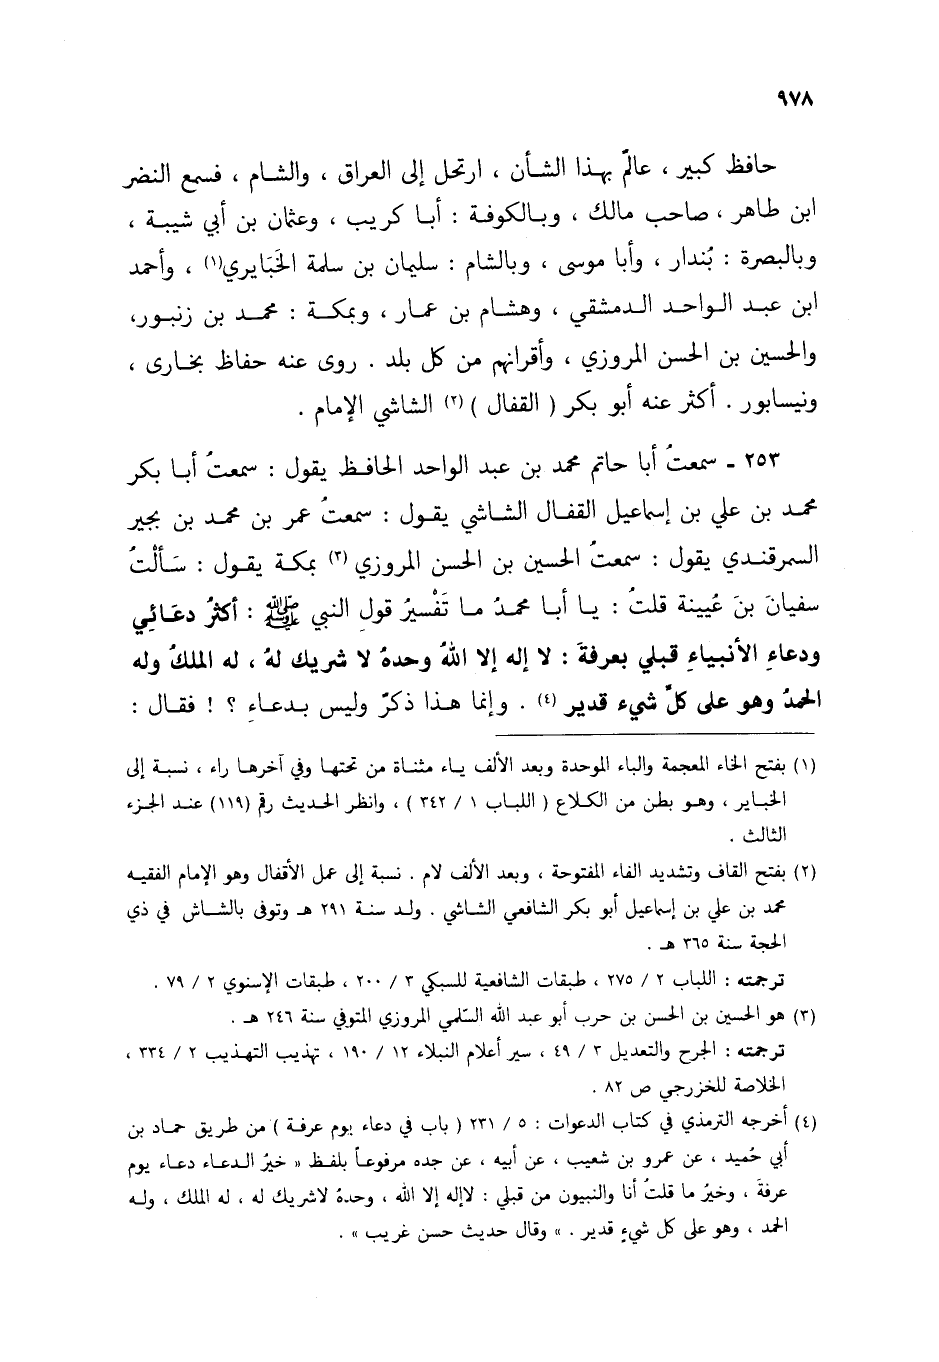 ٩٧٨
حافظ كبير ، عالمٌ بهذا الشأن ، ارتحل إلى العراق ، والشام ، فسمع النضر
ابن طاهر ، صاحب مالك ، وبالكوفة : أبا كريب ، وعثمان بن أبي شيبة ،
وبالبصرة : بُندار ، وأبا موسى ، وبالشام : سليمان بن سلمة الخَبَايري(١) ، وأحمد
ابن عبد الواحد الدمشقي ، وهشام بن عمار ، وبمكة : محمد بن زنبور،
والحسين بن الحسن المروزي ، وأقرانهم من كل بلد . روى عنه حفاظ بخارى ،
ونيسابور . أكثر عنه أبو بكر ( القفال ) (٢) الشاشي الإمام .
٢٥٣ ـ سمعتُ أبا حاتم محمد بن عبد الواحد الحافظ يقول : سمعتُ أبا بكر
محمد بن علي بن إسماعيل القفال الشاشي يقول : سمعتُ عمر بن محمد بن بجير
السمرقندي يقول : سمعتُ الحسين بن الحسن المروزي (٣) بمكة يقول : سَألْتُ
سفيانَ بنَ عُيينة قلتُ : يا أبا محمدُ ما تَفْسيرُ قولِ النبي ﷺ : أكثرُ دعَائِي
ودعاءِ الأنبياءِ قبلي بعرفةَ : لا إله إلا اللهُ وحدهُ لا شريك لهُ ، له الملكُ وله
الحمدُ وهو على كلِّ شيء قدير (٤) . وإنما هذا ذكرٌ وليس بدعاءِ ؟ ! فقال :
(١) بفتح الخاء المعجمة والباء الموحدة وبعد الألف ياء مثناة من تحتها وفي آخرها راء ، نسبة إلى
الخباير ، وهو بطن من الكلاع ( اللباب ١ / ٣٤٢ ) ، وانظر الحديث رقم (١١٩) عند الجزء
الثالث .
(٢) بفتح القاف وتشديد الفاء المفتوحة ، وبعد الألف لام . نسبة إلى عمل الأقفال وهو الإمام الفقيه
محمد بن علي بن إسماعيل أبو بكر الشافعي الشاشي . ولد سنة ٢٩١ هـ وتوفى بالشاش في ذي
الحجة سنة ٣٦٥ هـ .
ترجمته : اللباب ٢ / ٢٧٥ ، طبقات الشافعية للسبكي ٣ / ٢٠٠ ، طبقات الإسنوي ٢ / ٧٩ .
(٣) هو الحسين بن الحسن بن حرب أبو عبد الله السّلمي المروزي المتوفي سنة ٢٤٦ هـ .
ترجمته : الجرح والتعديل ٣ / ٤٩ ، سير أعلام النبلاء ١٢ / ١٩٠ ، تهذيب التهذيب ٢ / ٣٣٤ ،
الخلاصة للخزرجي ص ٨٢ .
(٤) أخرجه الترمذي في كتاب الدعوات : ٥ / ٢٣١ ( باب في دعاء يوم عرفة ) من طريق حماد بن
أبي حُميد ، عن عمرو بن شعيب ، عن أبيه ، عن جده مرفوعاً بلفظ « خيرُ الدعاء دعاء يوم
عرفةَ ، وخيرُ ما قلتُ أنا والنبيون من قبلي : لاإله إلا الله ، وحدهُ لاشريك له ، له الملك ، وله
الحمد ، وهو على كل شيءٍ قدير . » وقال حديث حسن غريب » .